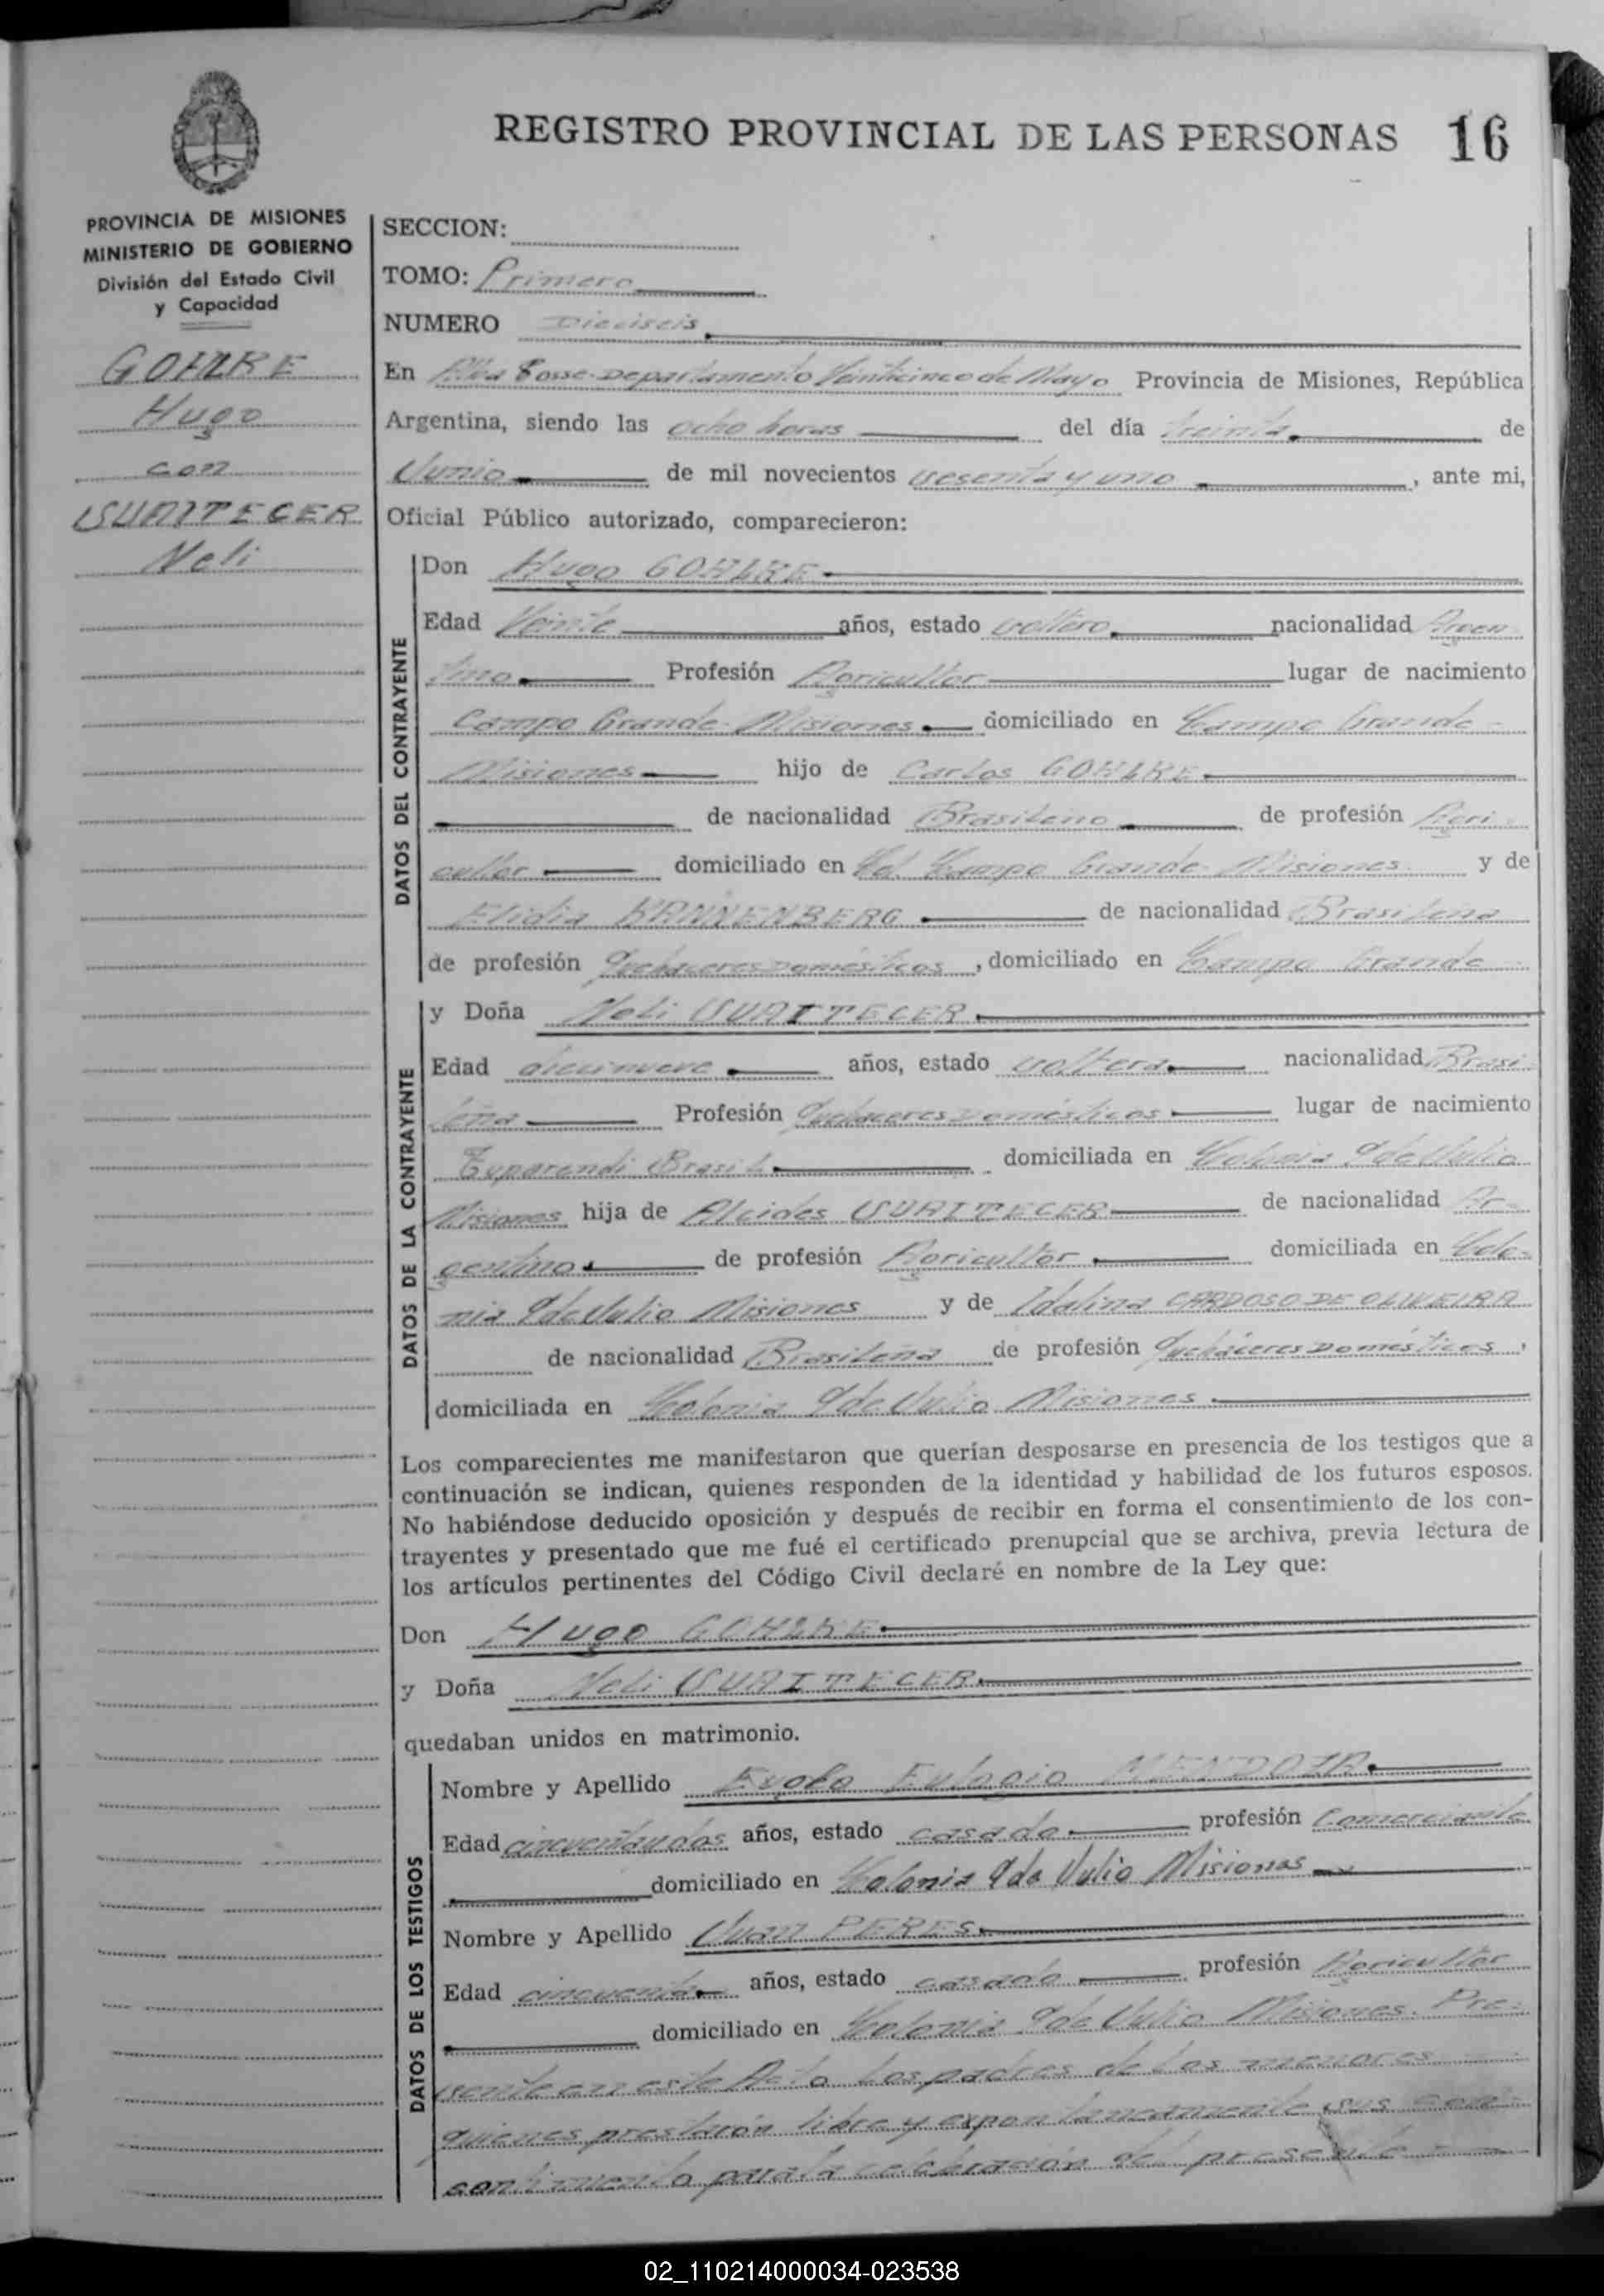 REGISTRO PROVINCIAL DE LAS PERSONAS 16
PROVINCIA DE MISIONES
MINISTERIO DE GOBIERNO
División del Estado Civil
y Capacidad
GOHLKE
Hugo
con
Neli
SECCION:
TOMO: Primero
NUMERO Dieciseis
En Alba Posse-Departamento Veinticinco de Mayo Provincia de Misiones, República
Argentina, siendo las ocho horas del día treinta de
Junio de mil novecientos sesenta y uno, ante mi,
Oficial Público autorizado, comparecieron:
DATOS DEL CONTRAYENTE
Don Hugo GOHLKE
Edad Veinte años, estado soltero nacionalidad Argen
tino Profesión Agricultor lugar de nacimiento
Campo Grande-Misiones domiciliado en Campo Grande-
Misiones hijo de Carlos GOHLKE
de nacionalidad Brasileno de profesión Agri
cultor domiciliado en Campo Grande-Misiones y de
Elidia KANNENBERG de nacionalidad Brasileña
de profesión Quehaceres Domésticos, domiciliado en Campo Grande
DATOS DE LA CONTRAYENTE
y Doña Neli
Edad diecinueve años, estado soltera nacionalidad Brasi
leña Profesión Quehaceres Domésticos lugar de nacimiento
Tuparendi Brasil domiciliada en Colonia 9 de Julio
Misiones hija de Alcides de nacionalidad Ar-
gentino de profesión Agricultor domiciliada en Colo-
nia 9 de Julio Misiones y de Idalina CARDOSO DE OLIVEIRA
de nacionalidad Brasileña de profesión Quehaceres Domésticos,
domiciliada en Colonia 9 de Julio Misiones
Los comparecientes me manifestaron que querían desposarse en presencia de los testigos que a
continuación se indican, quienes responden de la identidad y habilidad de los futuros esposos.
No habiéndose deducido oposición y después de recibir en forma el consentimiento de los con-
trayentes y presentado que me fué el certificado prenupcial que se archiva, previa lectura de
los artículos pertinentes del Código Civil declaré en nombre de la Ley que:
Don Hugo GOHLKE
y Doña Neli
quedaban unidos en matrimonio.
DATOS DE LOS TESTIGOS
Nombre y Apellido Eulogio MENDOZA
Edad cincuentaydos años, estado casado profesión Comerciante
domiciliado en Colonia 9 de Julio Misiones
Nombre y Apellido Juan PERES
Edad cincuenta años, estado casado profesión Agricultor
domiciliado en Colonia 9 de Julio Misiones. Pre-
sente en este Acto los padres de los menores
quienes prestarón libre y expontaneamente sus con-
contimiento para la celebración del presente
02_110214000034-023538